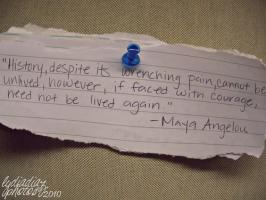 "History, despite its wrenching pain, cannot be
unlived, however, if faced with courage,
need not be lived again."
-Maya Angelou
©2010